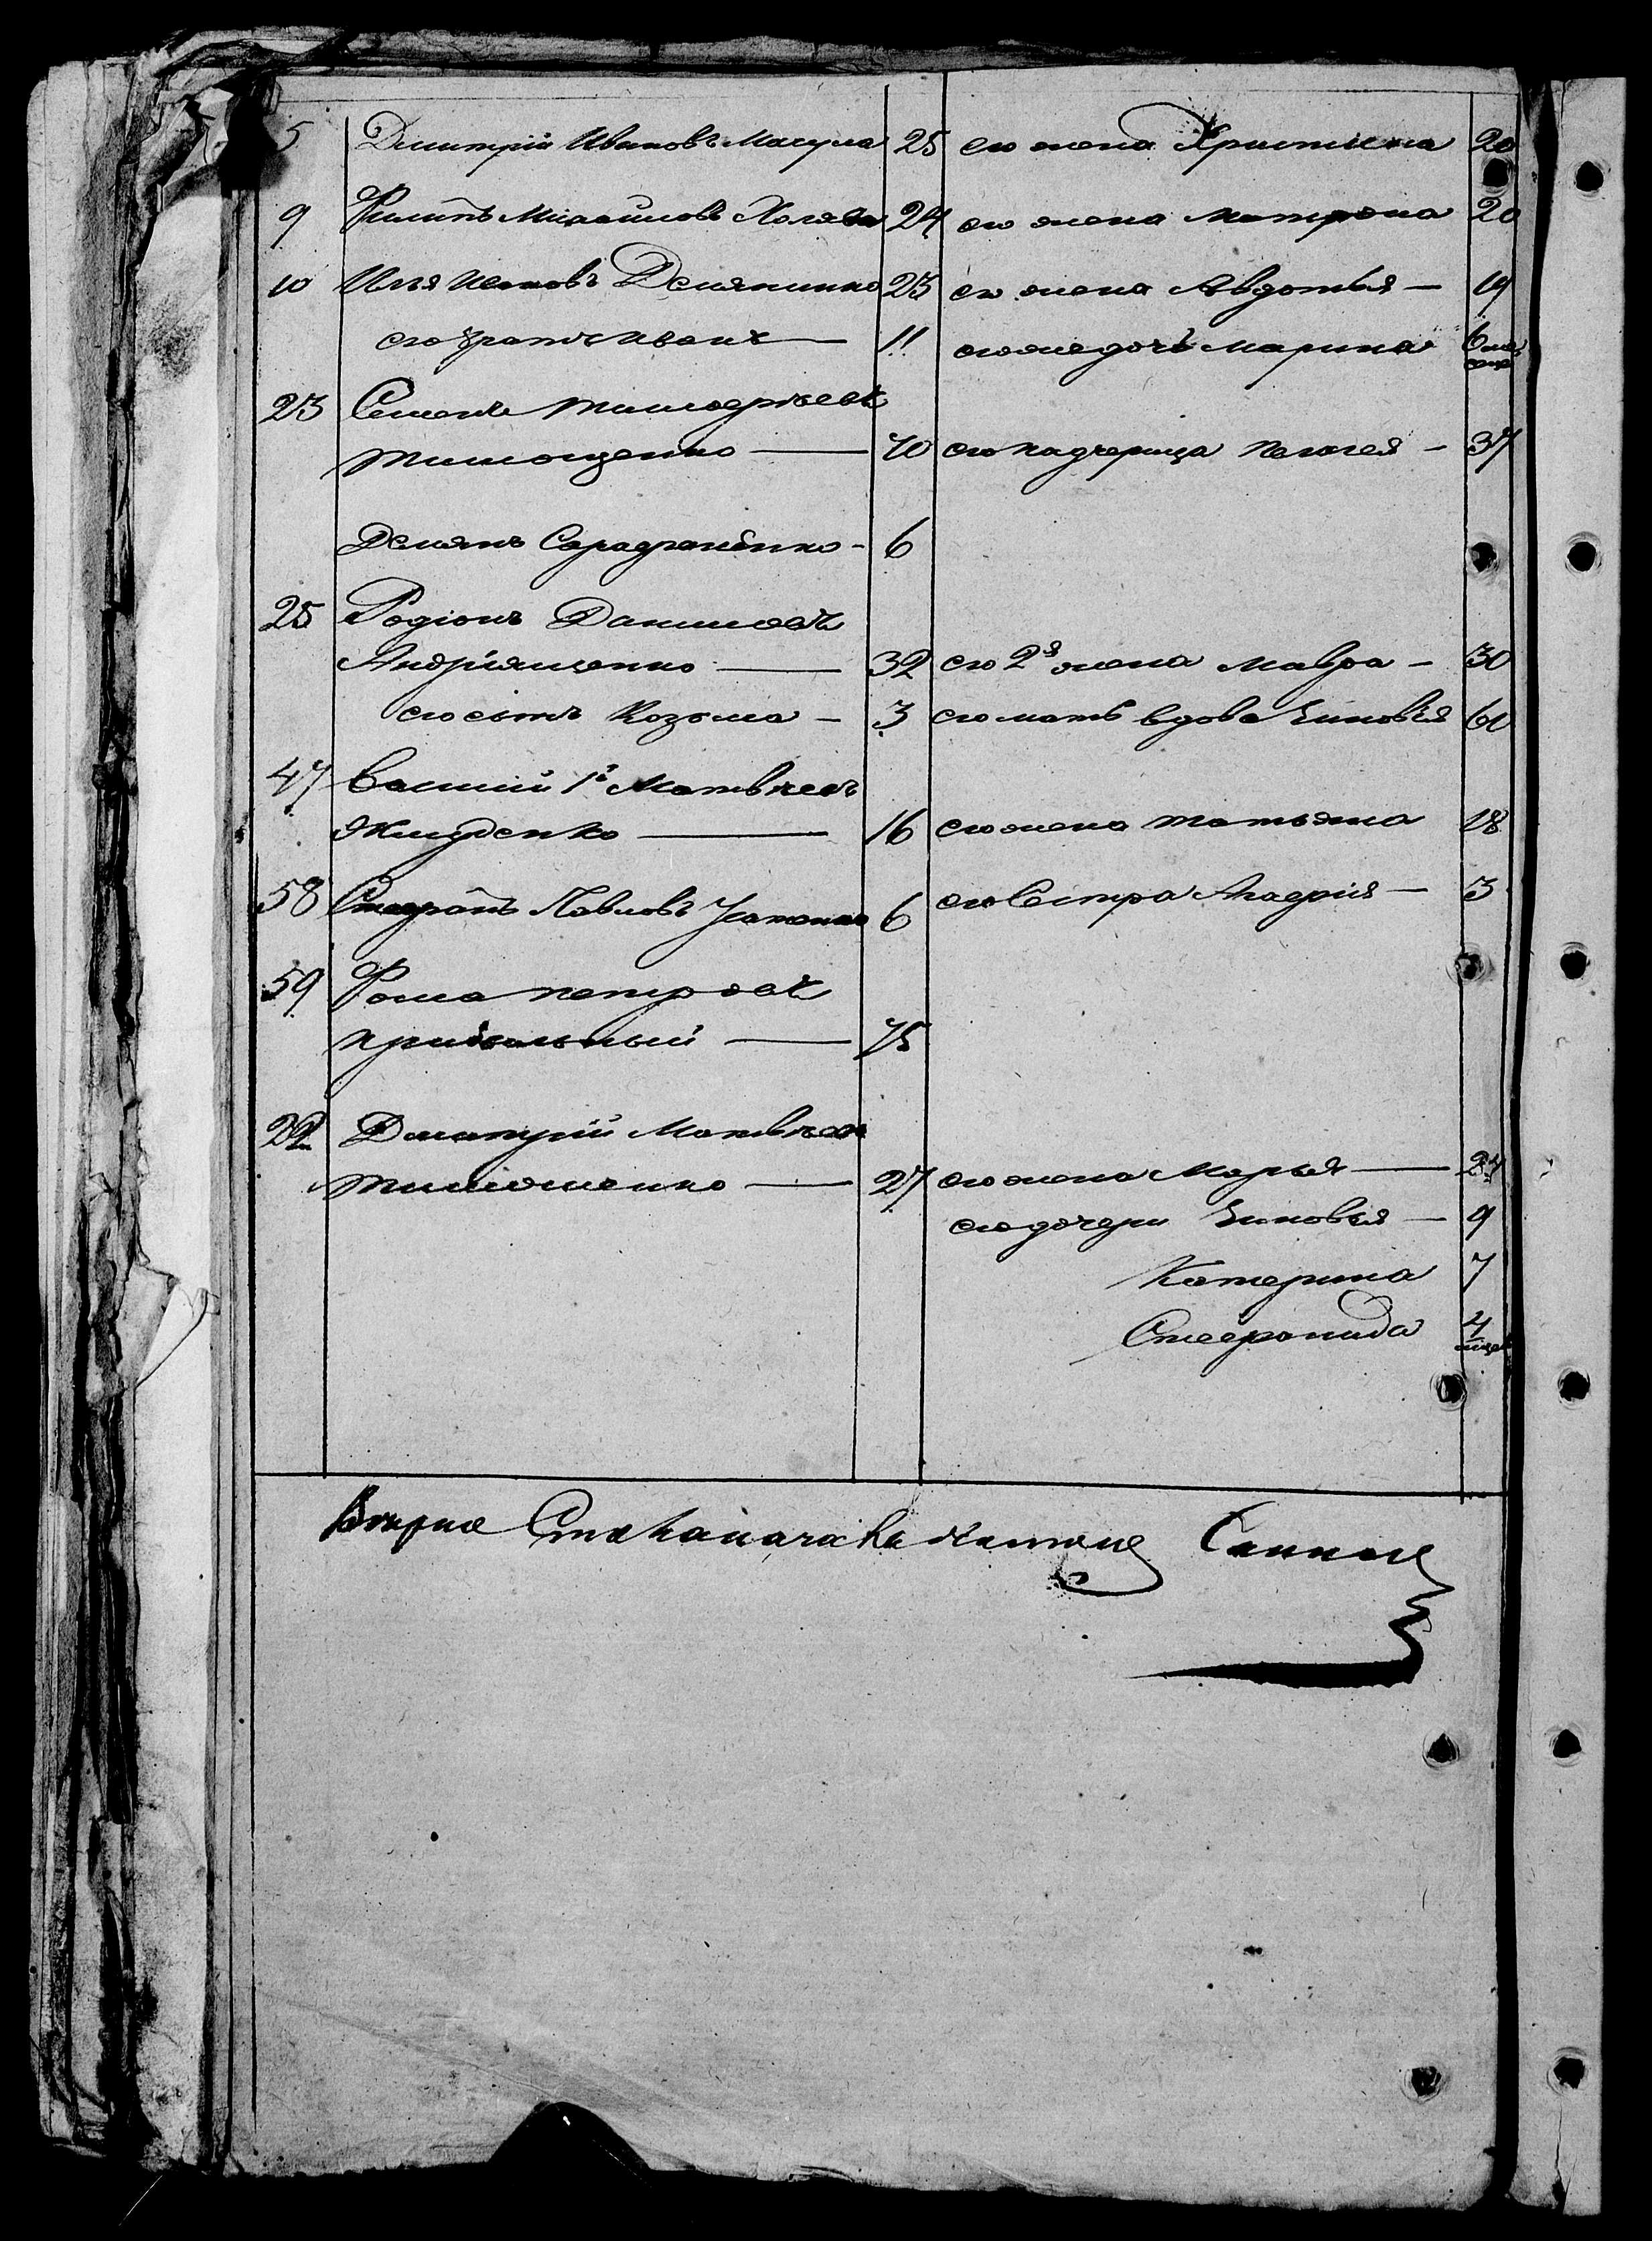 5 Дмитрій Ивановъ Масула 25 его жена Христина 20
9 Филипъ Михайловъ Халява 24 его жена Матрона 20
10 Илья Ивановъ Демяненко 23 его жена Авдотья — 19
его братъ Иванъ — 11 его же дочь Марина 6
23 Семенъ Тимофѣевъ
Тимошенко — 70 его падчерица Пелагея — 37
Демянъ - 6
25 Родіонъ Даниловъ
Андріященко — 32 его 2я жена Мавра — 30
его сынъ Козьма — 3 его мать вдова Зиновья 60
47 Василій 1й Матвѣевъ
16 его жена Татьяна 18
58 Павловъ Усатенко 6 его сестра Агафія — 3
59 Фома Петровъ
— 75
22 Дмитрій Матвѣевъ
Тимошенко — 27 его жена Марья — 27
его дочери Зиновья — 9
Катерина 7
Степанида 4
Вѣрно